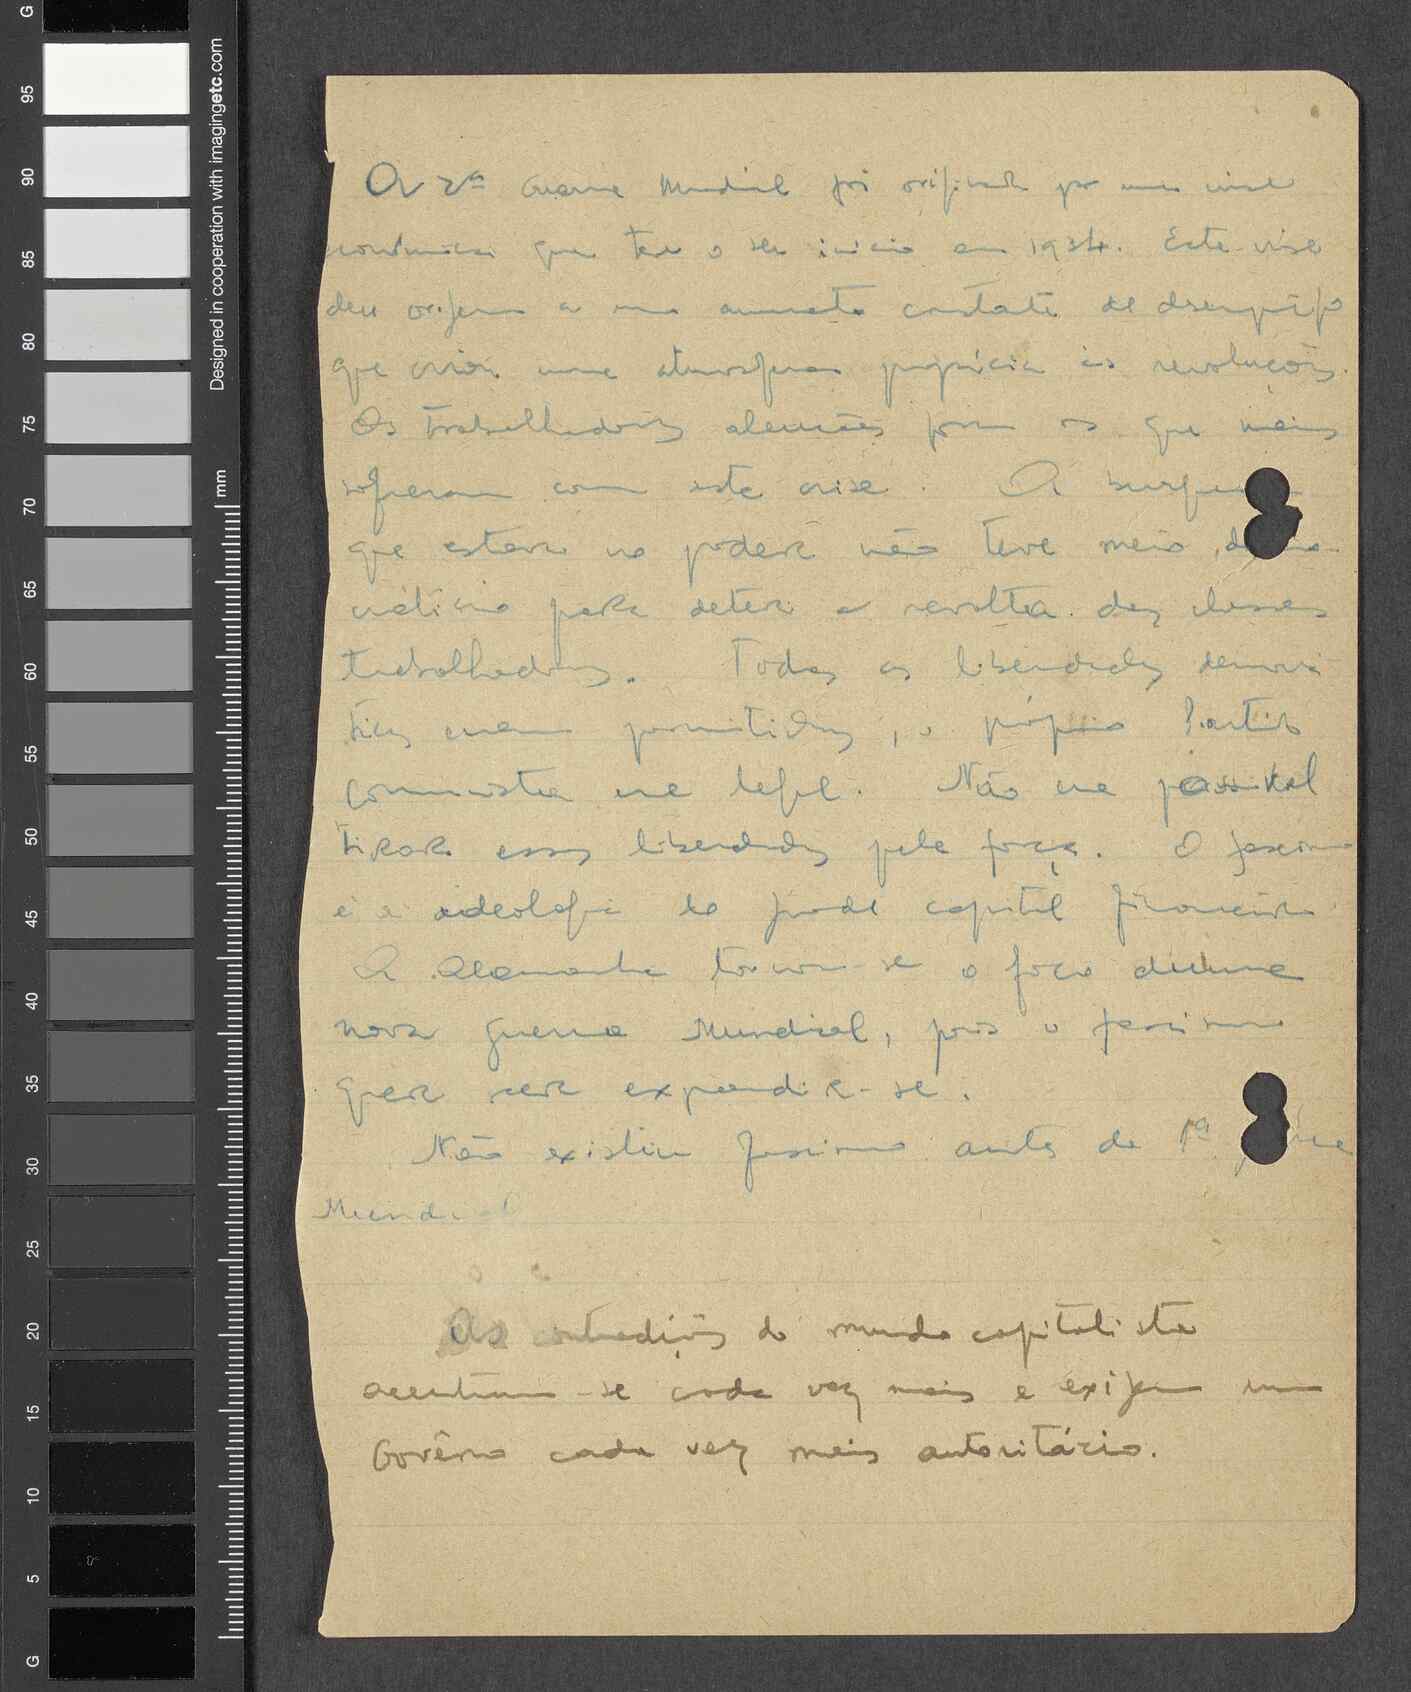 G
95
90
85
80
75
70
65
60
55
50
45
40
35
30
25
20
15
10
5
G
Designed in cooperation with imagingetc.com
mm
A 2ª Guerra Mundial foi originada por uma crise
económica que teve o seu inicio em 1934. Esta crise
deu origem a um aumento constante de desemprêgo
que criou uma atmosfera propícia às revoluções.
Os trabalhadores alemães foram os que mais
sofreram com esta crise. A burguesia
que estava no poder não teve meio demo-
crático para deter a revolta das classes
trabalhadoras. Todas as liberdades democrá
ticas eram permitidas, o próprio Partido
Comunista era legal. Não era possivel
tirar essas liberdades pela força. O fascismo
é a ideologia do grande capital financeiro
A Alemanha tornou-se o foco duma
nova guerra Mundial, pois o fascismo
quer expandir-se.
Não existiu fascismo antes da 1ª Guerra
Mundial
As contradições do mundo capitalista
acentuam-se cada vez mais e exigem um
Govêrno cada vez mais autoritário.